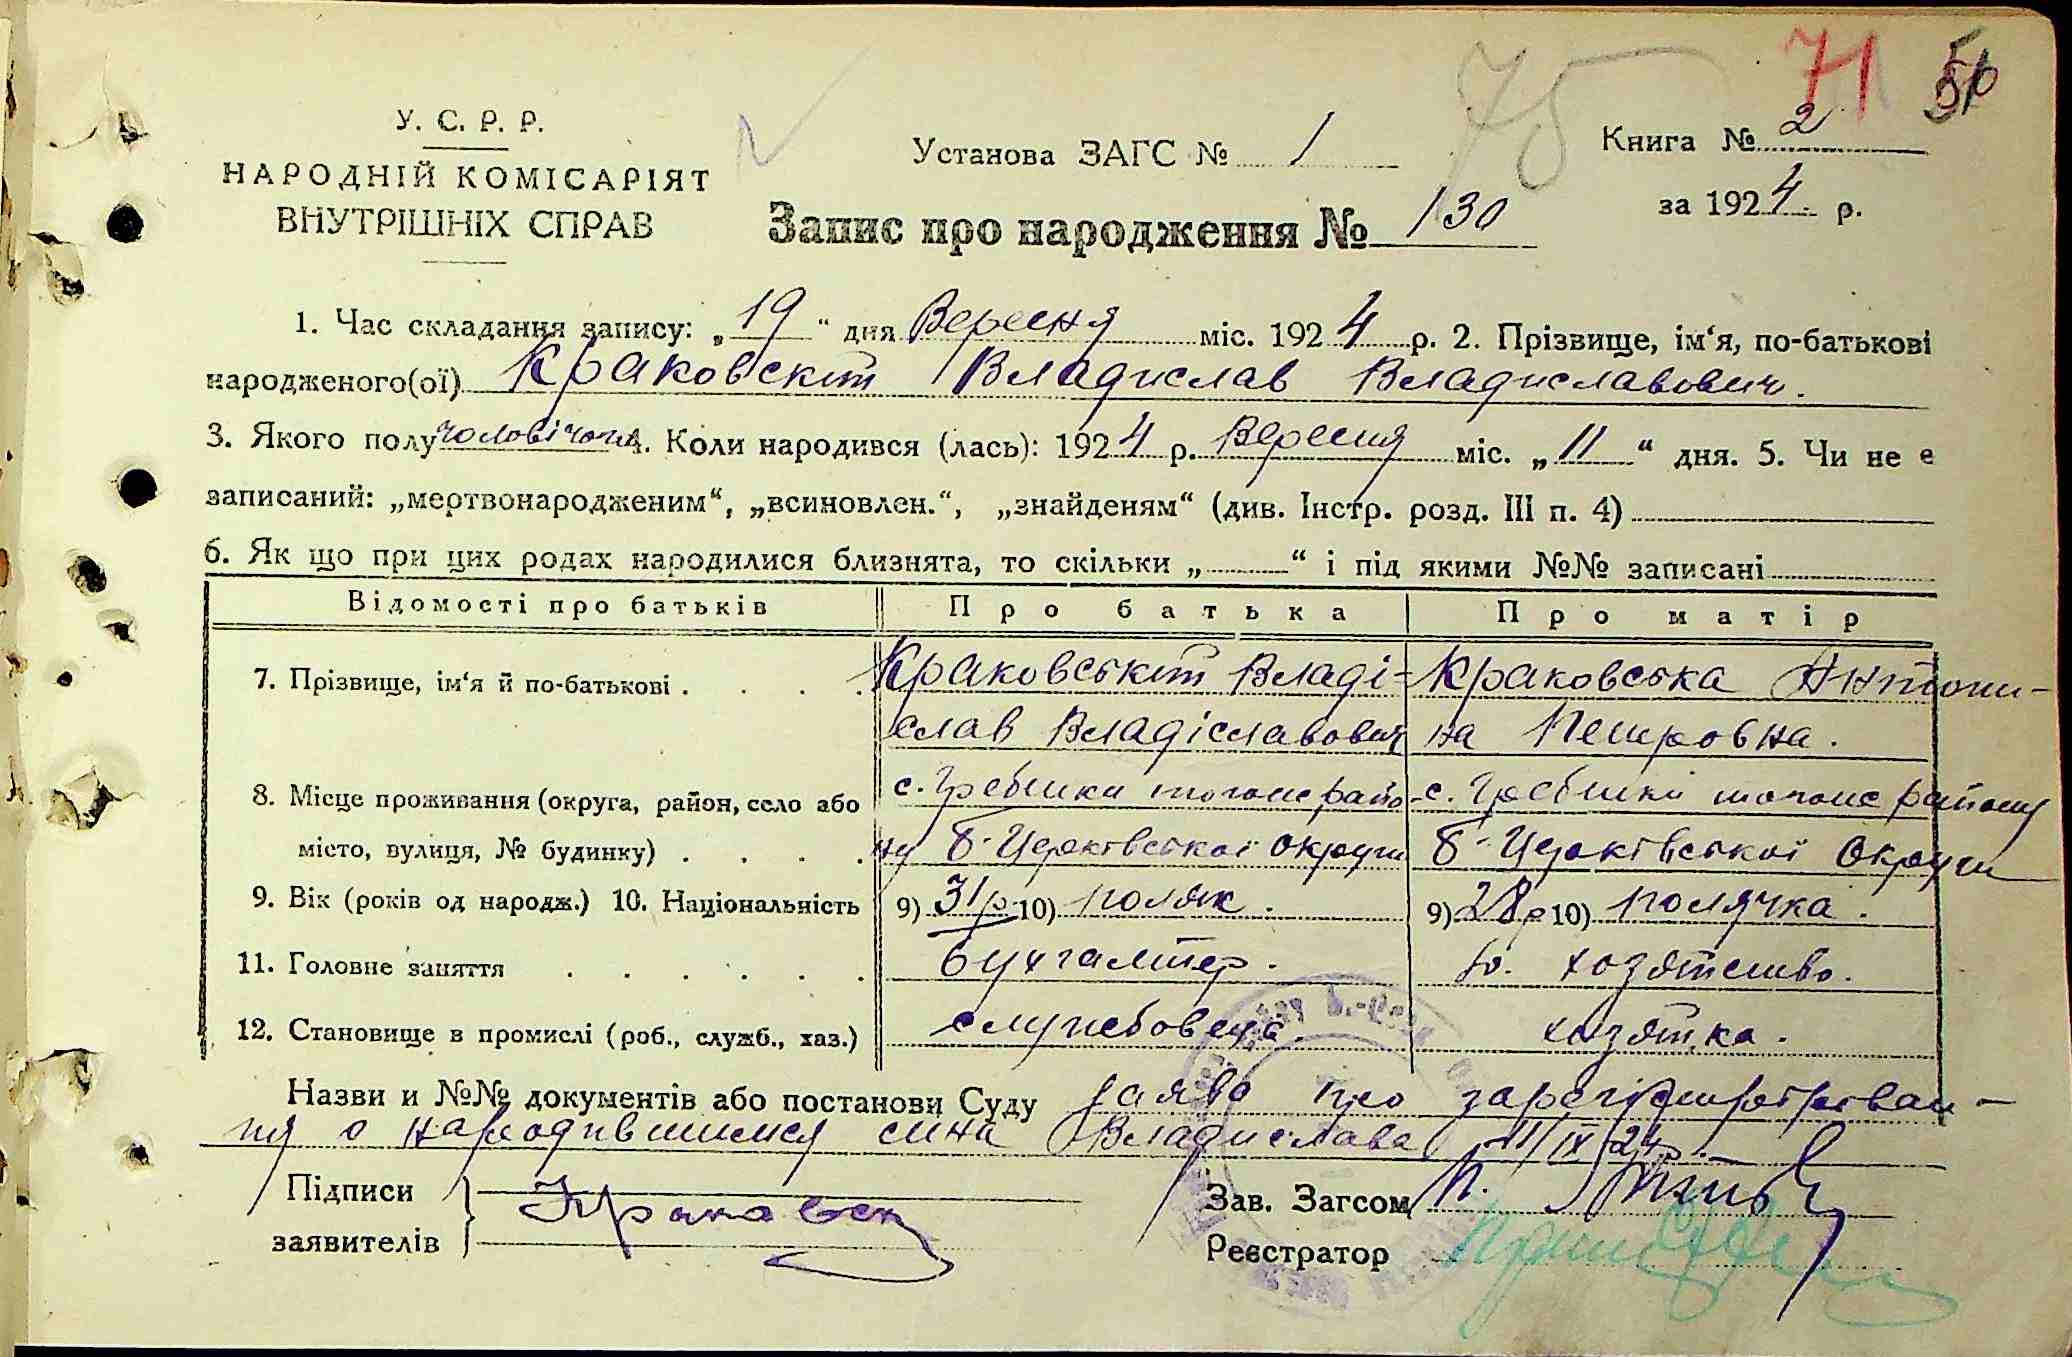 75 71 56
У. С. Р. Р.
НАРОДНІЙ КОМІСАРІЯТ
ВНУТРІШНІХ СПРАВ
Установа ЗАГС № 1
Книга № 2
за 1924 р.
Запис про народження № 130
1. Час складання запису: „19“ дня Вересня міс. 1924 р. 2. Прізвище, ім‘я, по-батькові
народженого(ої) Краковский Владислав Владиславович.
3. Якого полу чоловічого 4. Коли народився (лась): 1924 р. Вересня міс. „11“ дня. 5. Чи не є
записаний: „мертвонародженим“, „всиновлен.“, „знайденям“ (див. Інстр. розд. III п. 4)
6. Як що при цих родах народилися близнята, то скільки „ “ і під якими №№ записані
Відомості про батьків Про батька Про матір
7. Прізвище, ім‘я й по-батькові . . . . Краковський Владі- Краковська Антони-
слав Владіславович на Петровна.
8. Місце проживання (округа, район, село або с. Гребінки того ж райо- с. Гребінки того ж району
місто, вулиця, № будинку) . . . . ну Б-Церковської округи Б-Церковської Округи
9. Вік (років од народж.) 10. Національність 9) 31 р 10) поляк. 9) 28 р 10) полячка.
11. Головне заняття . . . . . . бухгалтер. хозяйство.
12. Становище в промислі (роб., служб., хаз.) службовець. хозяйка.
Назви и №№ документів або постанови Суду заява про зарегістрірован-
ня о народившимся сина Владислава 11/IX 24 р.
Підписи
заявителів
Краковск
Зав. Загсом
Реєстратор